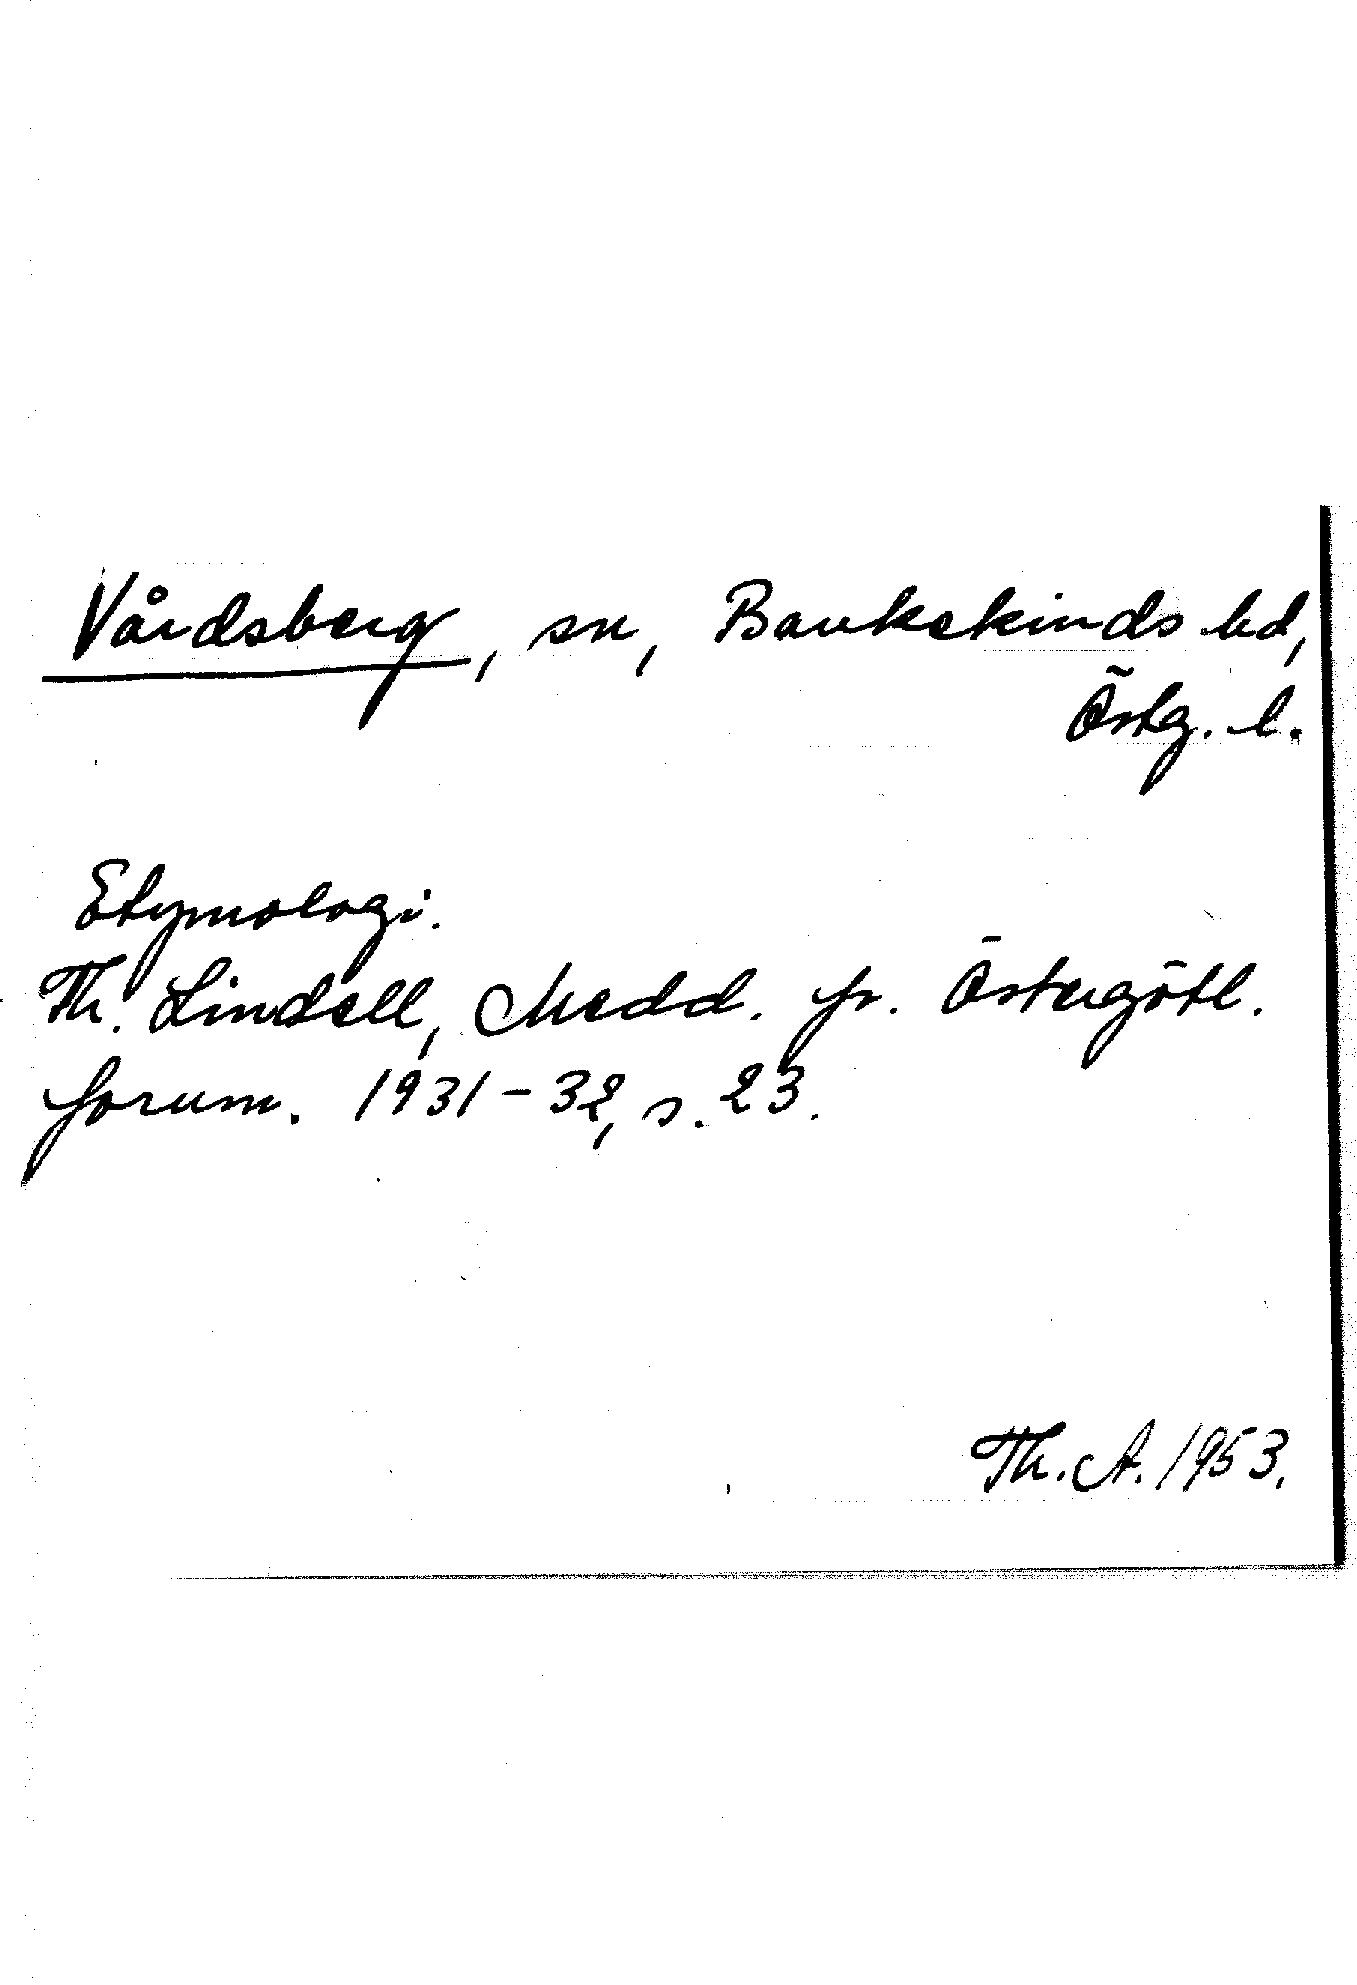 Vårdsberg, sn, Bankekinds hd,
Östg. l.
Etymologi.
Th. Lindell, Medd. fr. Östergötl.
forum. 1931-32, s. 23.
Th. A. 1953.